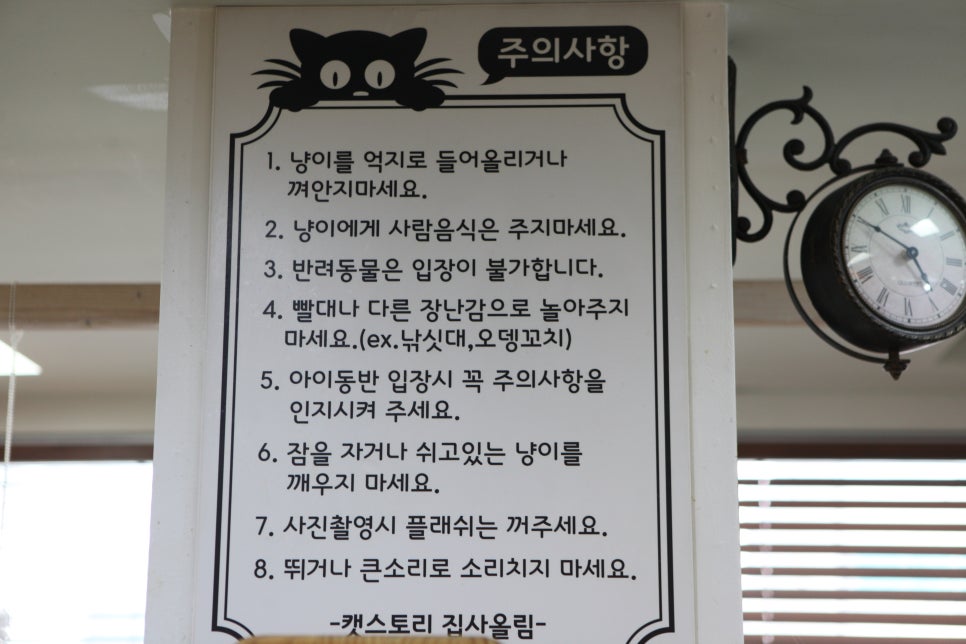 주의사항
1. 냥이를 억지로 들어올리거나
껴안지마세요.
2. 냥이에게 사람음식은 주지마세요.
3. 반려동물은 입장이 불가합니다.
4. 빨대나 다른 장난감으로 놀아주지
마세요.(ex.낚싯대,오뎅꼬치)
5. 아이동반 입장시 꼭 주의사항을
인지시켜 주세요.
6. 잠을 자거나 쉬고있는 냥이를
깨우지 마세요.
7. 사진촬영시 플래쉬는 꺼주세요.
8. 뛰거나 큰소리로 소리치지 마세요.
-캣스토리 집사올림-